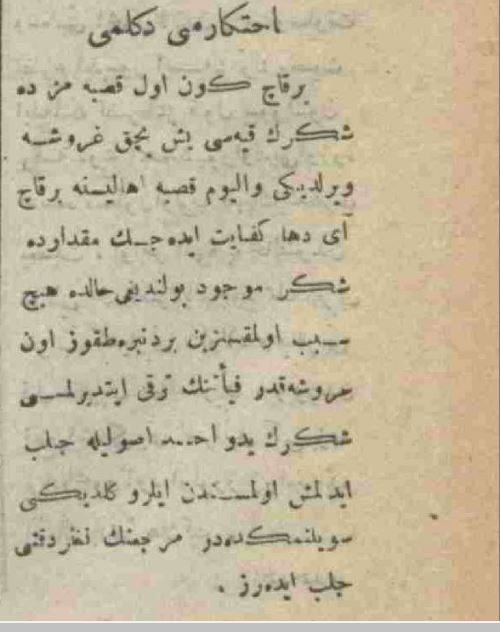 احتكارمى دكلمى
برقاچ كون اول قصبه مز ده
شكرك قيه‌سى بش بچق غروشه
ويرلديكى واليوم قصبه اهاليسنه برقاچ
آى دها كفايت ايده‌جك مقدارده
شكر موجود بولنديغى حالده هيچ
سبب اولمقسزين بردنبره طقوز اون
غروشه قدر فيأتنك ترقى ايتديرلمسى
شكرك يدو احد اصوليله جلب
ايدلمش اولمسندن ايلرو كلديكى
سويلنمكده‌در مرجعنك نظردقتنى
جلب ايده‌رز .